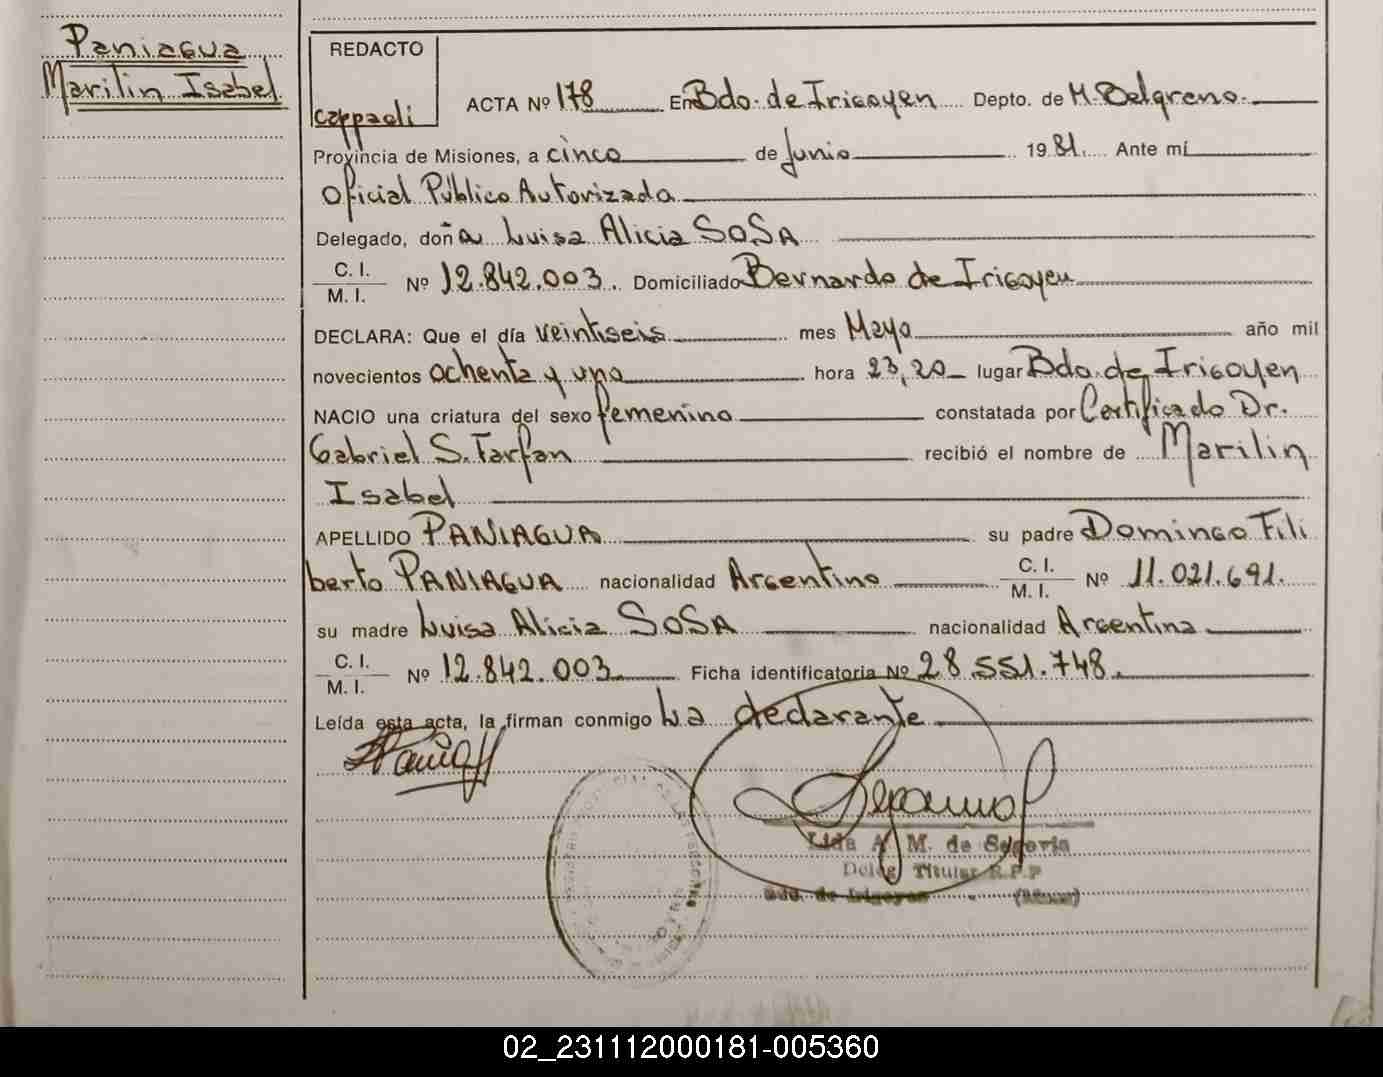 Paniagua
Marilin Isabel
REDACTO
cappaeli
ACTA Nº 178 En Bdo. de Irigoyen Depto. de M. Belgrano.
Provincia de Misiones, a cinco de Junio 1981. Ante mí
Oficial Público Autorizada
Delegado, doña Luisa Alicia SOSA
C. I.
M. I. Nº 12.842.003. Domiciliado Bernardo de Irigoyen
DECLARA: Que el día veintiseis mes Mayo año mil
novecientos ochenta y uno hora 23,20 lugar Bdo. de Irigoyen
NACIO una criatura del sexo femenino constatada por Certificado Dr.
Gabriel S. Farfan recibió el nombre de Marilin
Isabel
APELLIDO PANIAGUA su padre Domingo Fili
berto PANIAGUA nacionalidad Argentino C. I.
M. I. Nº 11.021.691.
su madre Luisa Alicia SOSA nacionalidad Argentina
C. I.
M. I. Nº 12.842.003 Ficha identificatoria Nº 28.551.748.
Leída esta acta, la firman conmigo La declarante
Lida A. M. de Segovia
Deleg. Titular R.P.P
Bdo. de Irigoyen (Mnes)
02_231112000181-005360